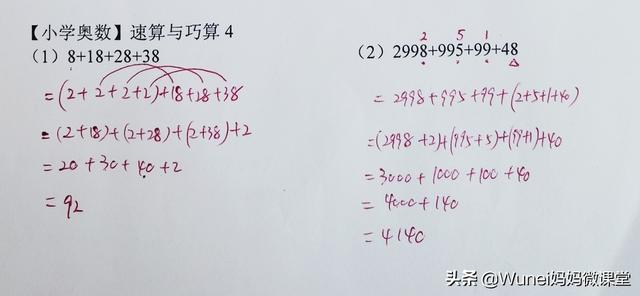 【小学奥数】速算与巧算 4
（1）8+18+28+38
=(2+2+2+2)+18+28+38
=(2+18)+(2+28)+(2+38)+2
=20+30+40+2
=92
2 5 1
（2）2998+995+99+48
=2998+995+99+(2+5+1+40)
=(2998+2)+(995+5)+(99+1)+40
=3000+1000+100+40
=4000+140
=4140
头条@Wunei妈妈微课堂